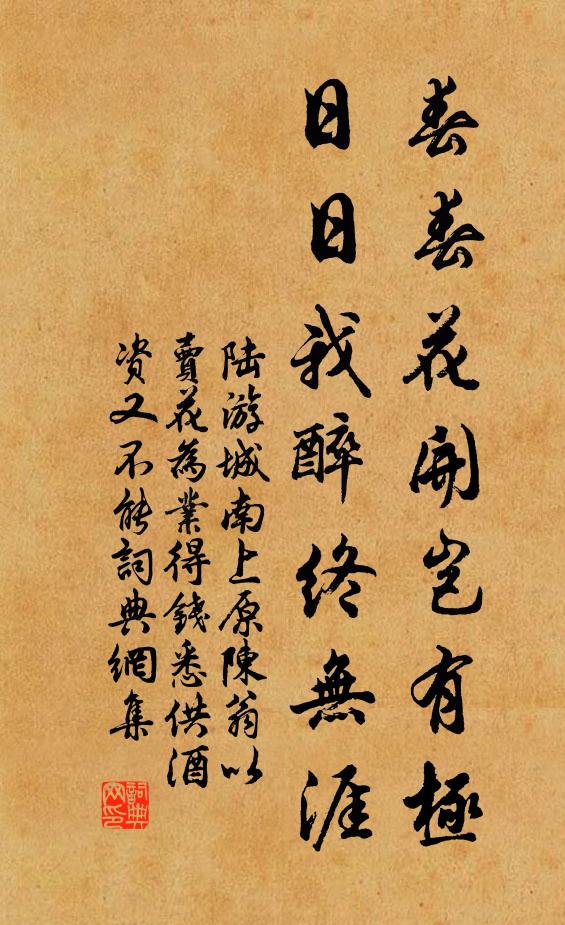 春春花開豈有極
日日我醉終無涯
陆游城南上原陳翁以
賣花為業得錢悉供酒
资又不能詞典網集
詞典
网印